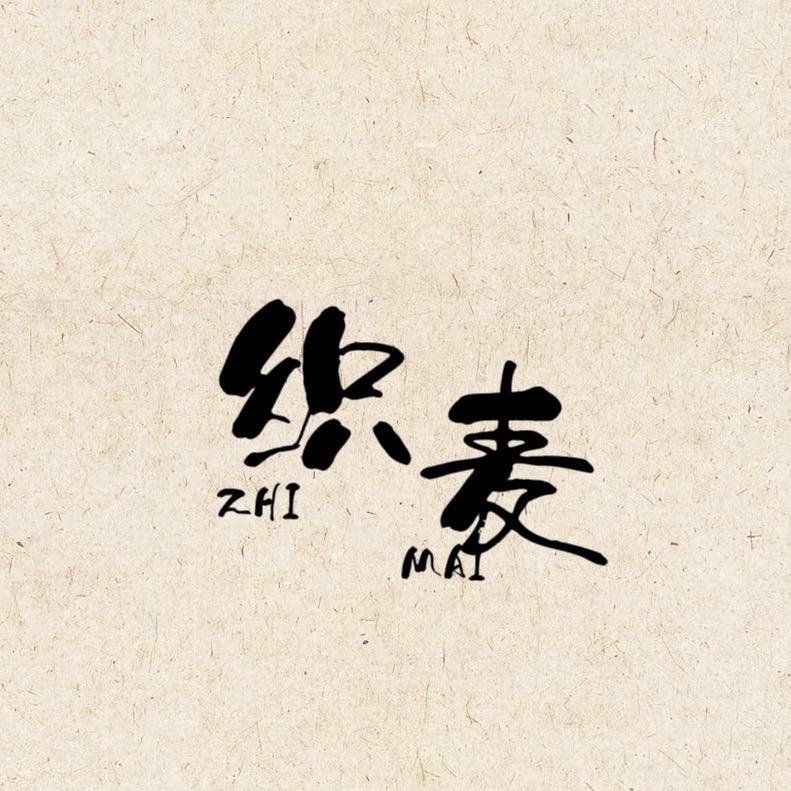 织麦
ZHI
MAI